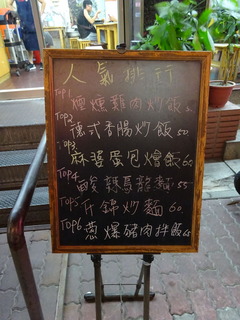 人氣排行
Top1
煙燻雞肉炒飯
Top2
德式香腸炒飯 50
Top3
麻婆蛋包燴飯 60
Top4
酸辣馬鈴薯 55
Top5
什錦炒麵 60
Top6
蔥爆豬肉拌飯